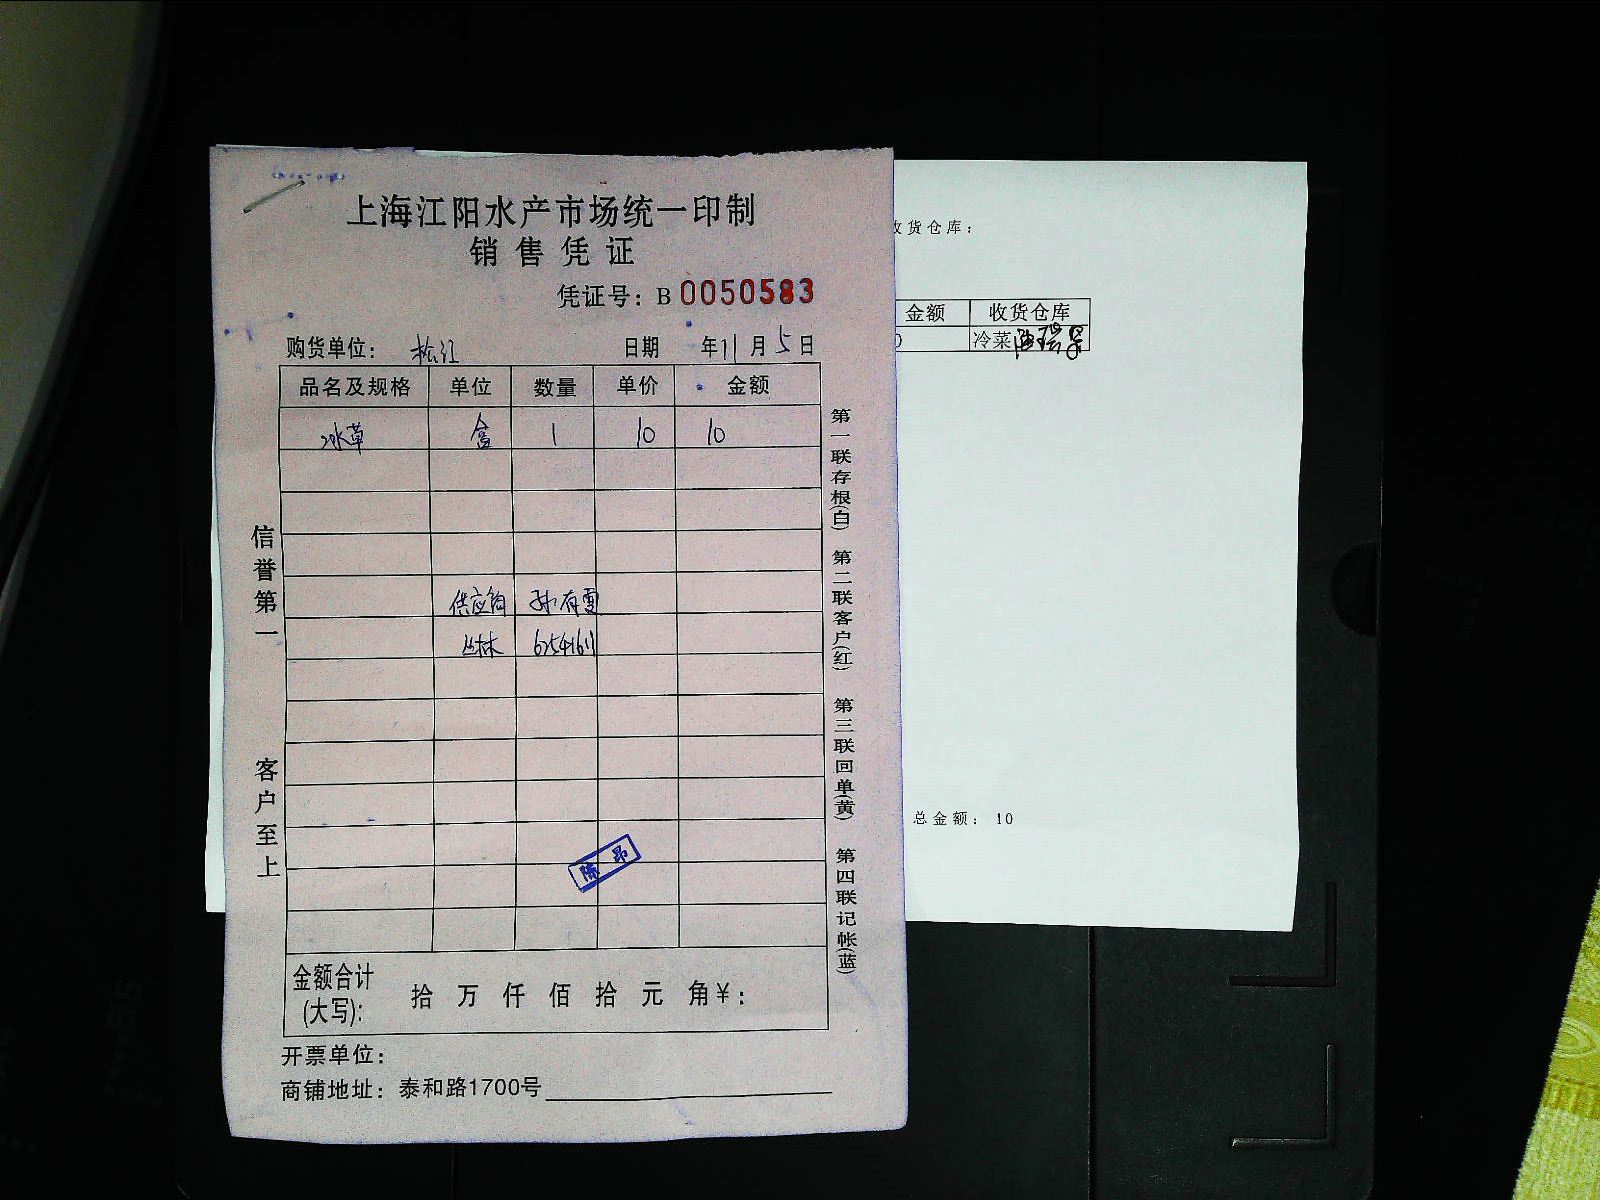 上海江阳水产市场统一印制
销售凭证
凭证号：B 0050583
购货单位： 松江 日期 年11月5日
品名及规格 单位 数量 单价 金额
冰草 盒 1 10 10
供应商 孙有雪
丛林 62541611
陈昂
信誉第一
客户至上
第一联存根(白) 第二联客户(红) 第三联回单(黄) 第四联记帐(蓝)
金额合计
(大写)： 拾 万 仟 佰 拾 元 角￥：
开票单位：
商铺地址：泰和路1700号
收货仓库：
金额 收货仓库
0 冷菜
总金额： 10